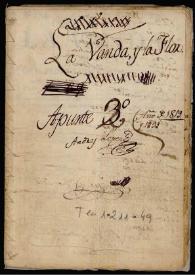 La Vanda, y la Flor.
Apunte 3º
Año de 1813
y 1821
Andres Lopez
Tea 1-211-49